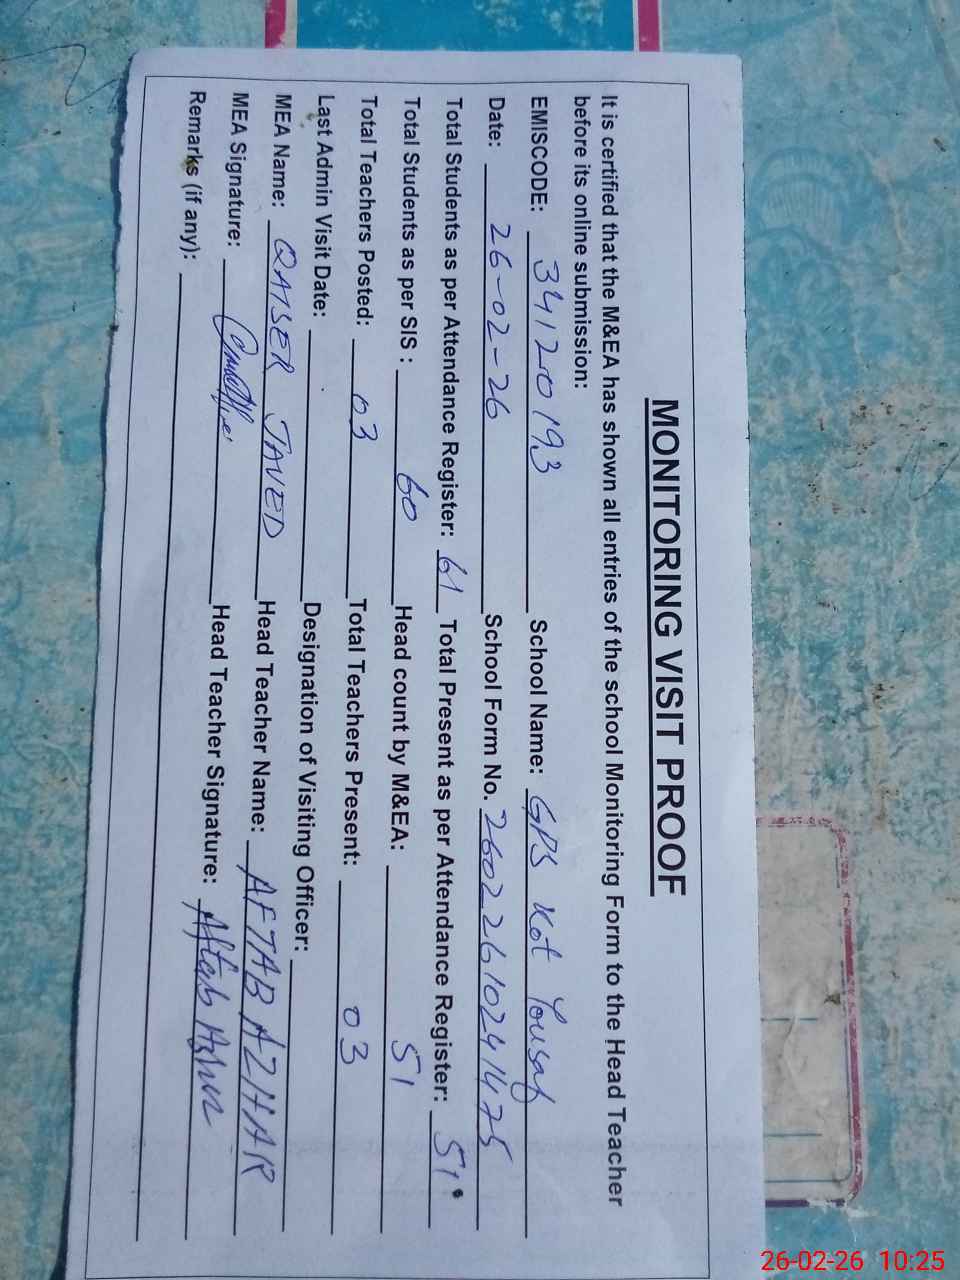 MONITORING VISIT PROOF
It is certified that the M&EA has shown all entries of the school Monitoring Form to the Head Teacher
before its online submission:
EMISCODE: 34120193 School Name: GPS Kot Yousaf
Date: 26-02-26 School Form No. 26022610241475
Total Students as per Attendance Register: 61 Total Present as per Attendance Register: 51
Total Students as per SIS : 60 Head count by M&EA: 51
Total Teachers Posted: 03 Total Teachers Present: 03
Last Admin Visit Date: Designation of Visiting Officer:
MEA Name: QAISER JAVED Head Teacher Name: AFTAB AZHAR
MEA Signature: Head Teacher Signature: Aftab Azhar
Remarks (if any):
26-02-26 10:25